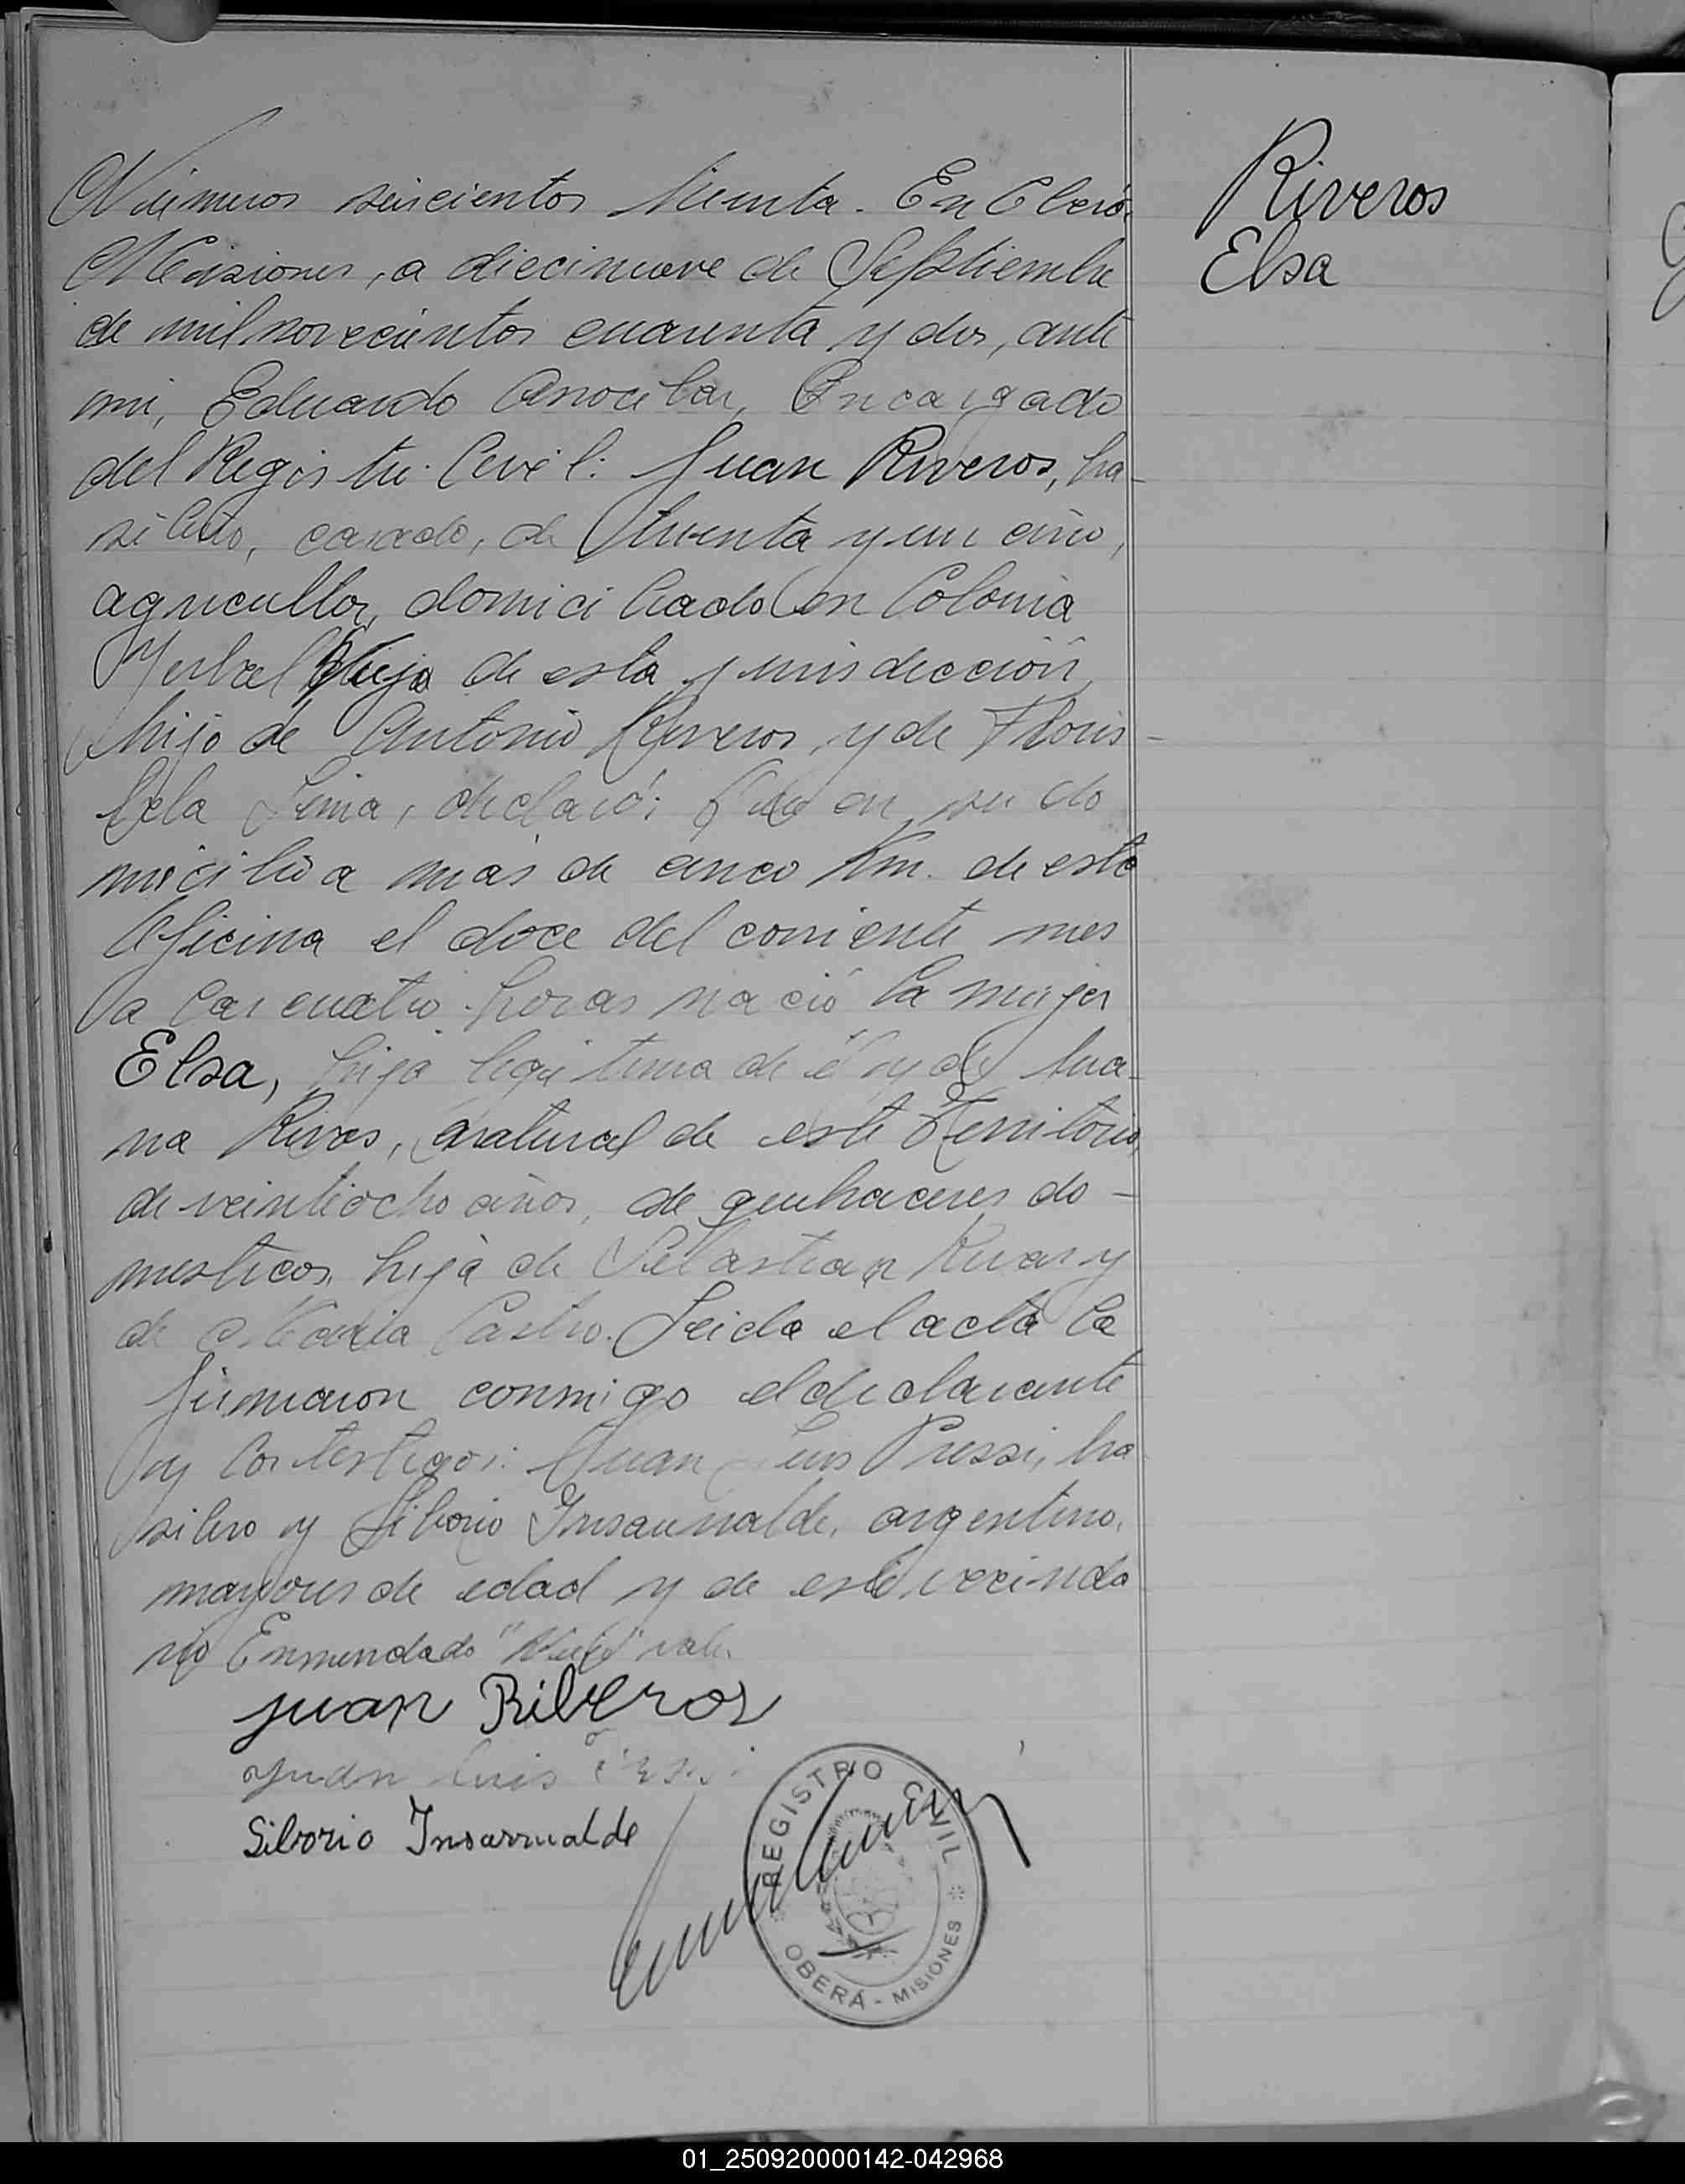 Número seiscientos treinta. En Oberá,
Misiones, a diecinueve de Septiembre
de mil novecientos cuarenta y dos, ante
mi, Eduardo Encargado
del Registro Civil: Juan Riveros, bra-
silero, casado, de treinta y un año,
agricultor, domiciliado en Colonia
Yerbal Viejo de esta jurisdicción,
hijo de Antonio Riveros, y de Floris
bela Lima, declaró: Que en su do
micilio a mas de cinco Km. de esta
Oficina el doce del corriente mes
a las cuatro horas nació la mujer
Elsa, hija legitima de él y de Jua-
na Rivas, natural de este Territorio,
de veintiocho años, de quehaceres do-
mesticos, hija de Sebastian Rivas y
de Maria Castro. Leida el acta la
firmaron conmigo el declarante
y los testigos: Juan Luis Pressi, bra
silero y Siborio Insaurralde, argentino,
mayores de edad y de este vecinda
rio Enmendado "Viejo" vale.
Juan Riberos
Juan Luis
Siborio Insarrualde
REGISTRO CIVIL
OBERÁ - MISIONES
Riveros
Elsa
01_250920000142-042968